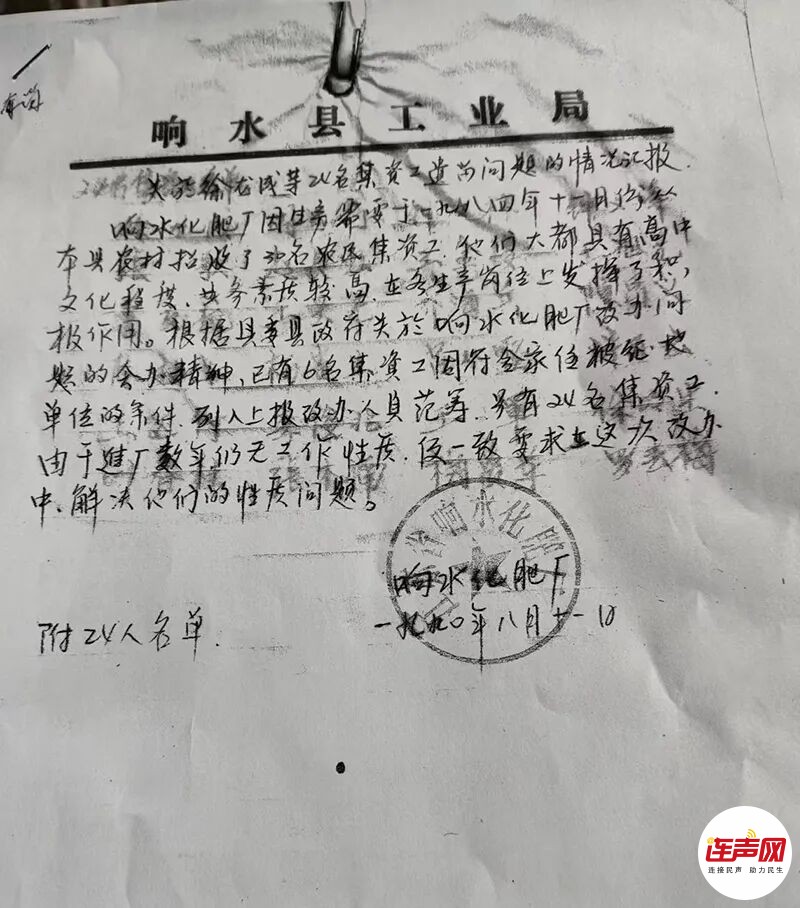 响水县工业局
关于徐龙成等24名集资工遗留问题的情况汇报
响水化肥厂因生产需要于一九八四年十二月经
本县农村招收了30名农民集资工.他们大都具有高中
文化程度、业务素质较高.在各生产岗位上发挥了积
极作用。根据县委县政府关於响水化肥厂改办问
题的会办精神,已有6名集资工因符合家住被征地
单位的条件.列入上报改办人员范筹.另有24名集资工.
由于进厂数年仍无工作性质.一致要求在这次改办
中.解决他们的性质问题。
响水化肥厂
附24人名单.
一九九〇年八月十一日
响水化肥
连声网
连接民声 助力民生